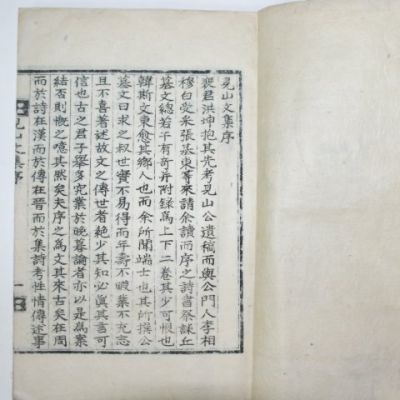 見山文集序
裵君洪坤抱其先考見山公遺稿而與公門人李相
穆白受采張基東等來請余讀而序之詩書祭誄丘
墓文總若干有奇并附錄爲上下二卷其少可恨也
韓斯文東愈其鄕人也而余所聞端士也其所撰公
墓文曰求之叔世實不易得而年壽不暇業不充志
且不喜著述故文之傳世者絶少其知必眞其言可
信也古之君子擧多究業於晩暮論者亦以是爲案
結否則慨之噫其然矣夫序之爲文其來古矣在周
而於詩在漢而於傳在晉而於集詩考性情傳述事
見山文集序 一